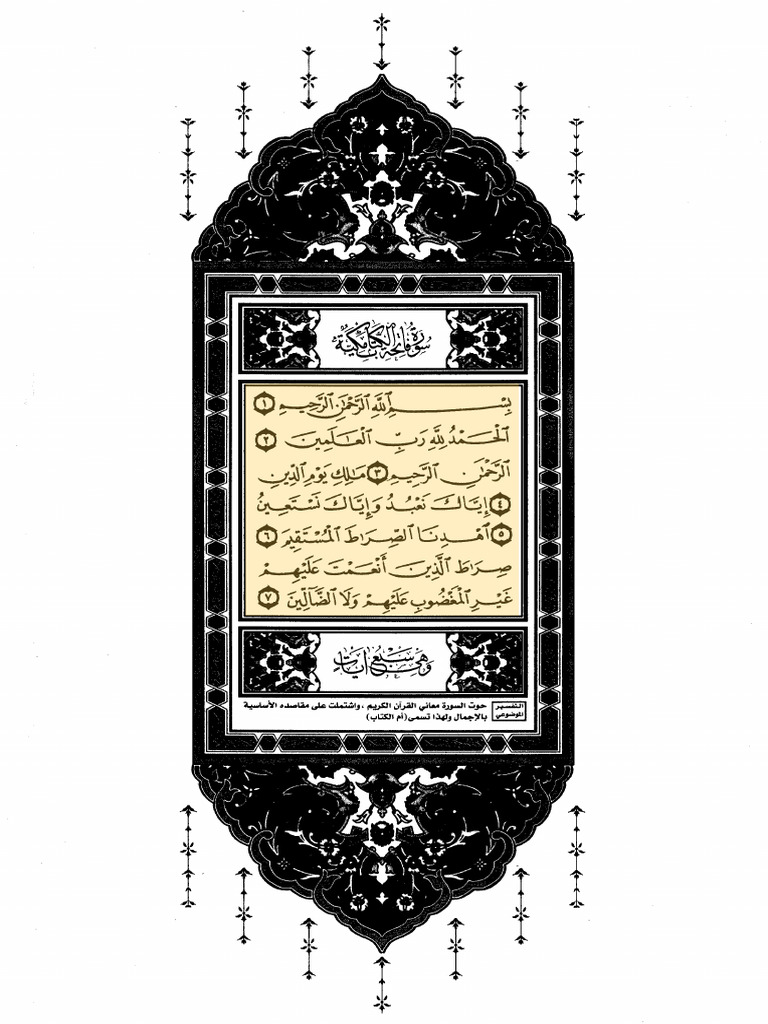 سورة فاتحة الكتاب مكية
بِسْمِ ٱللَّهِ ٱلرَّحْمَٰنِ ٱلرَّحِيمِ ١
ٱلْحَمْدُ لِلَّهِ رَبِّ ٱلْعَٰلَمِينَ ٢
ٱلرَّحْمَٰنِ ٱلرَّحِيمِ ٣ مَٰلِكِ يَوْمِ ٱلدِّينِ
٤ إِيَّاكَ نَعْبُدُ وَإِيَّاكَ نَسْتَعِينُ
٥ ٱهْدِنَا ٱلصِّرَٰطَ ٱلْمُسْتَقِيمَ ٦
صِرَٰطَ ٱلَّذِينَ أَنْعَمْتَ عَلَيْهِمْ
غَيْرِ ٱلْمَغْضُوبِ عَلَيْهِمْ وَلَا ٱلضَّآلِّينَ ٧
وهي سبع آيات
التفسير الموضوعي
حوت السورة معاني القرآن الكريم ، واشتملت على مقاصده الأساسية
بالإجمال ولهذا تسمى (أم الكتاب)